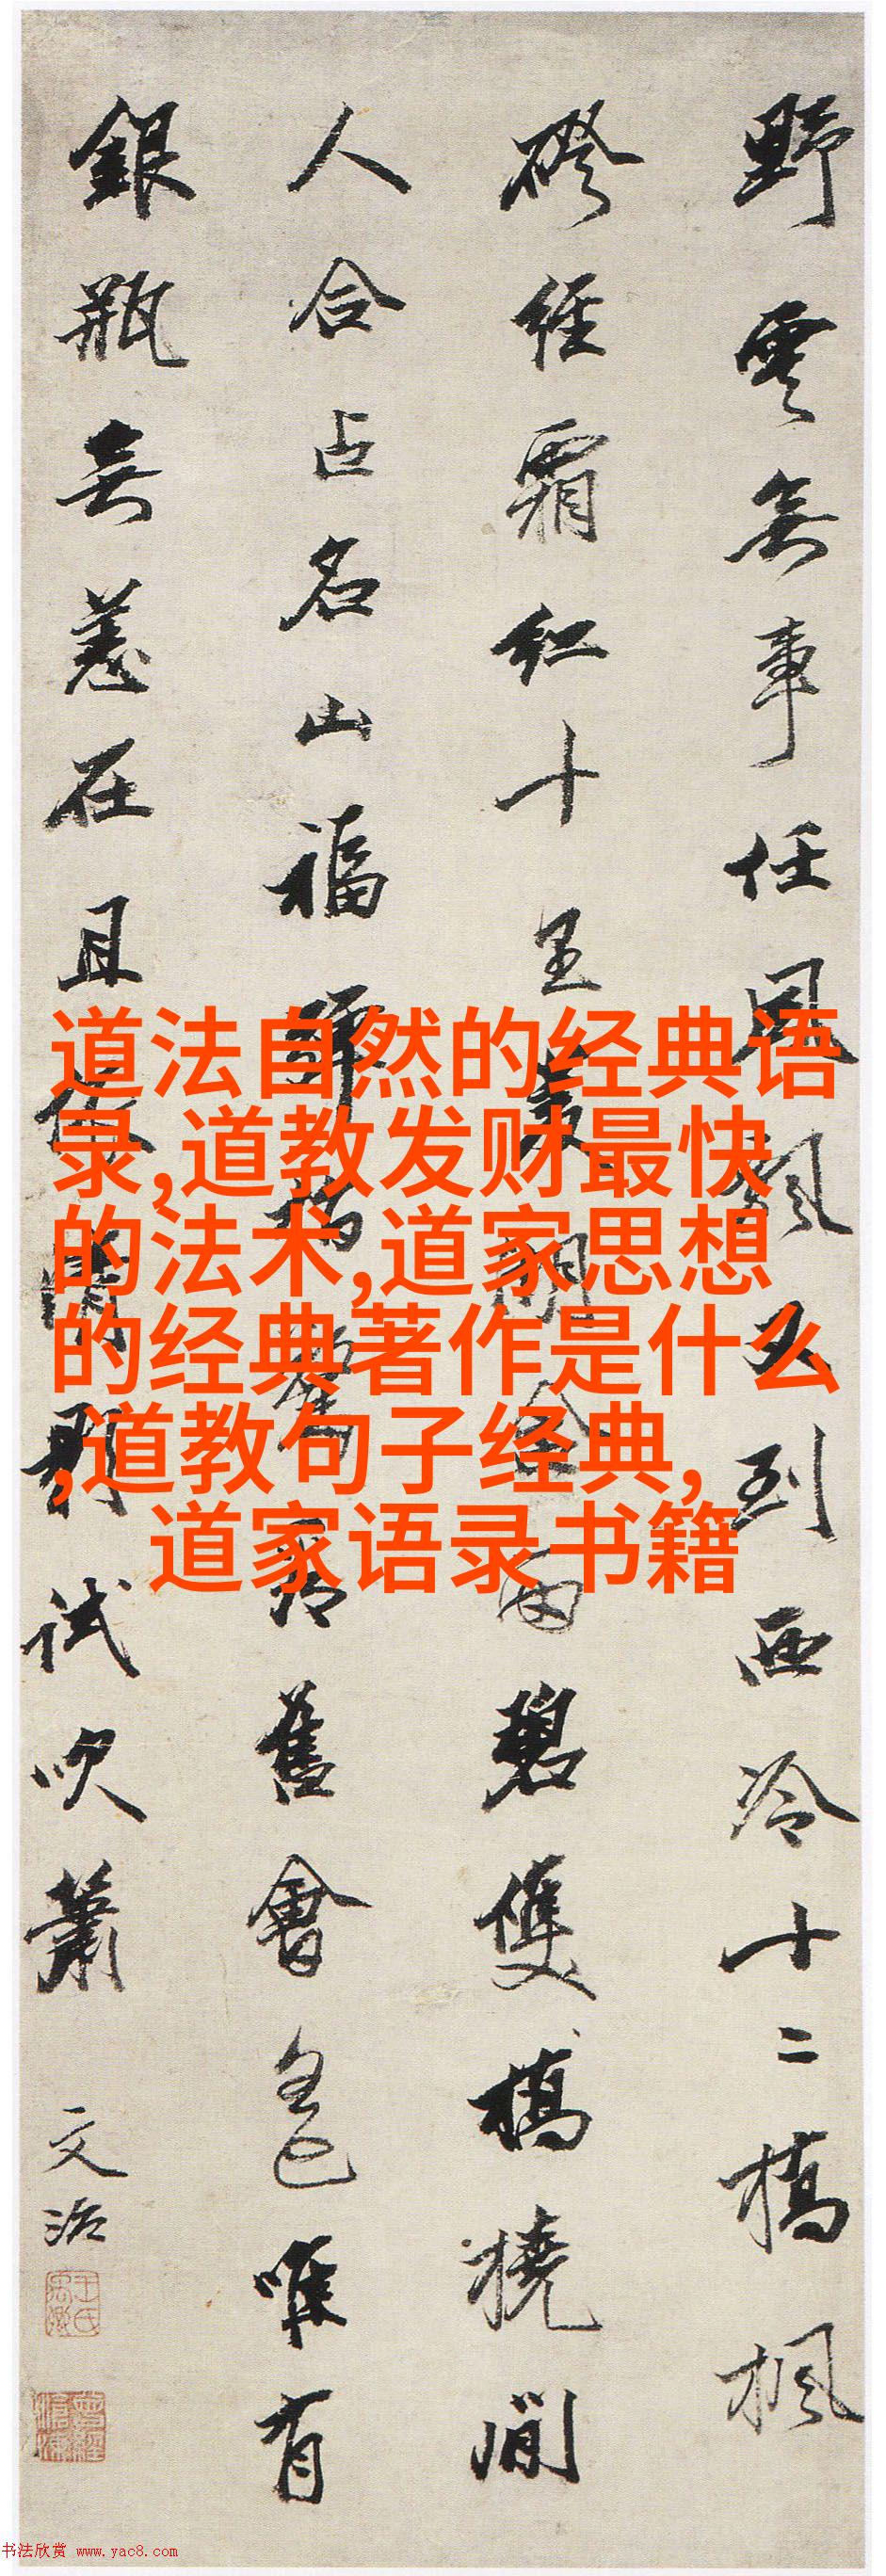 野雲無事任風飄又到西泠十二橋楓
磴經霜紅十里菱湖含雨碧雙橋橈閒
人合占名山福舊會唯有
銀瓶無恙在且依影試吹簫
文治
道法自然的经典语
录,道教发财最快
的法术,道家思想
的经典著作是什么
,道教句子经典,
道家语录书籍
书法欣赏 www.yac8.com